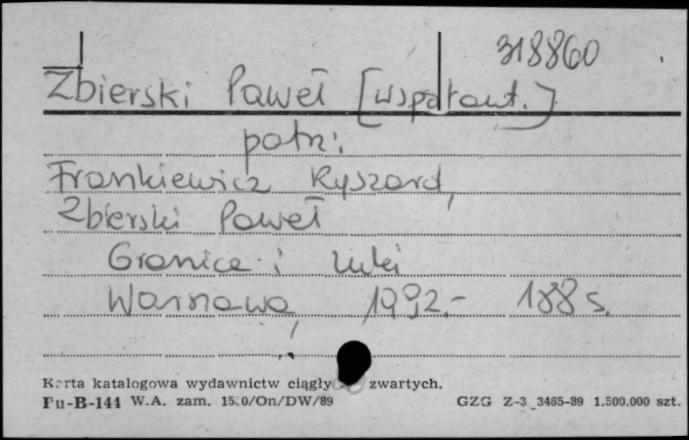 318860
Zbierski Paweł [współaut.]
patrz:
Frankiewicz Ryszard,
Zbierski Paweł
Granice i luki
Warszawa, 1992.- 188 s.
Karta katalogowa wydawnictw ciągły zwartych.
Pu-B-144 W.A. zam. 15.0/On/DW/89 GZG Z-3 3465-89 1.500.000 szt.